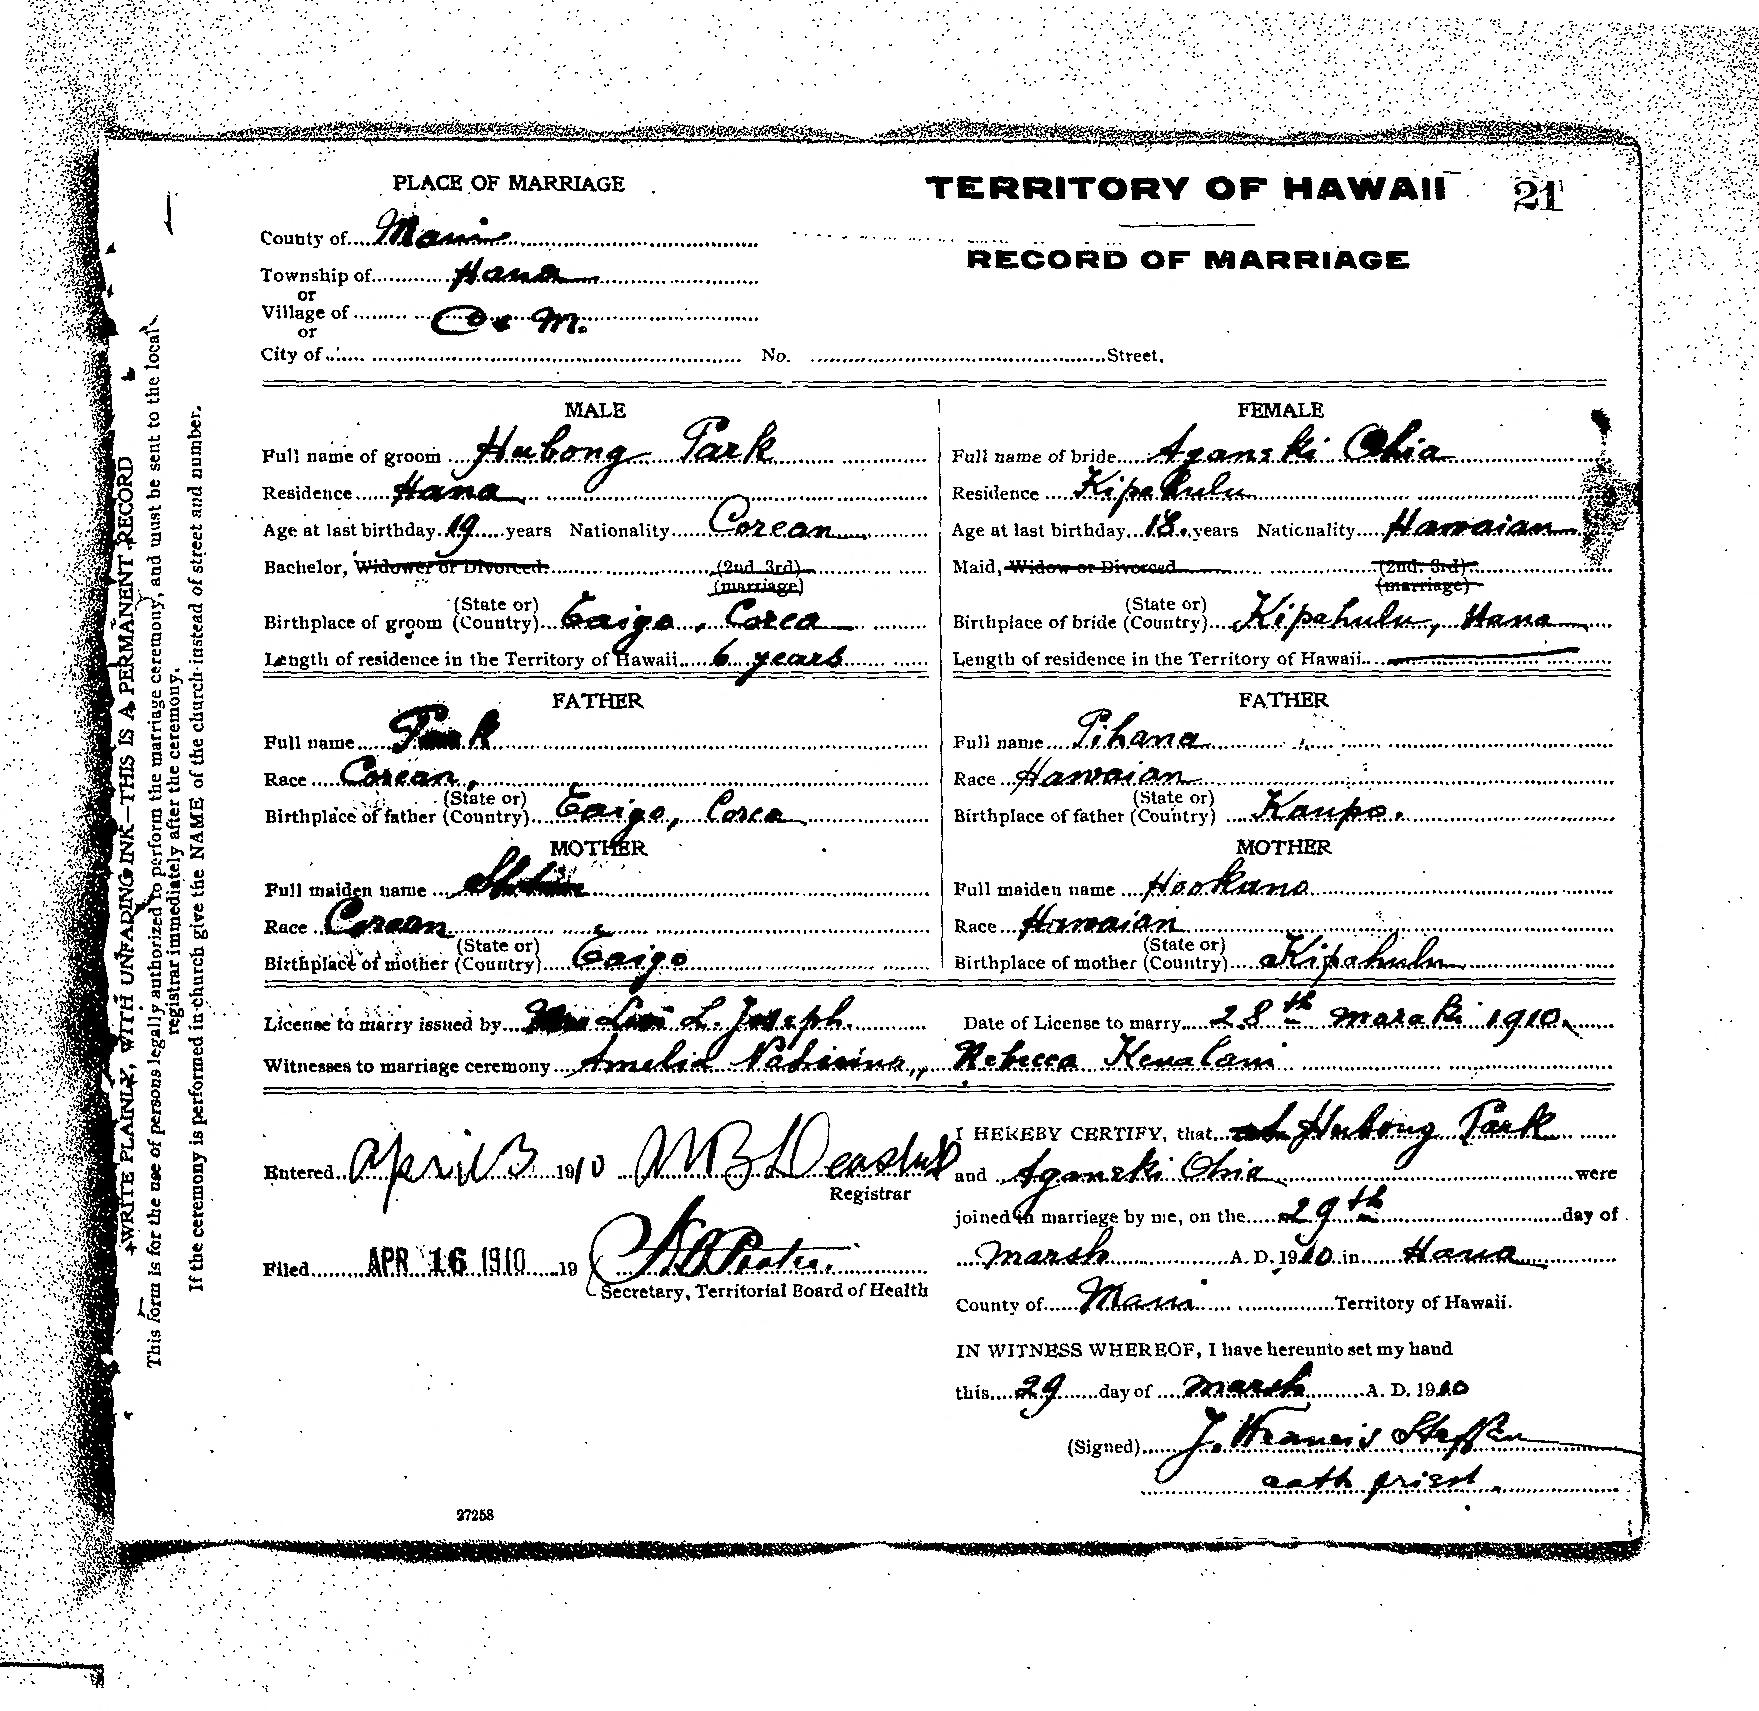 PLACE OF MARRIAGE
TERRITORY OF HAWAII 21
County of Maui
RECORD OF MARRIAGE
Township of Hana
or
Village of
or
City of No. Street.
MALE
Full name of groom Hubong Park
Residence Hana
Age at last birthday 19 years Nationality Corean
Bachelor, Widower or Divorced. (2nd 3rd)
(marriage)
Birthplace of groom (State or) (Country) Taigo, Corea
Length of residence in the Territory of Hawaii 6 years
FATHER
Full name Park
Race Corean,
Birthplace of father (State or) (Country) Taigo, Corea
MOTHER
Full maiden name
Race Corean
Birthplace of mother (State or) (Country) Taigo
FEMALE
Full name of bride Aganeki Ohia
Residence Kipahulu
Age at last birthday 18 years Nationality Hawaian
Maid, Widow or Divorced (2nd. 3rd)
(marriage)
Birthplace of bride (State or) (Country) Kipahulu, Hana
Length of residence in the Territory of Hawaii
FATHER
Full name Pihana
Race Hawaian
Birthplace of father (State or) (Country) Kaupo.
MOTHER
Full maiden name Hookano
Race Hawaian
Birthplace of mother (State or) (Country) Kipahulu
License to marry issued by L. Joseph. Date of License to marry 28th Maraki 1910.
Witnesses to marriage ceremony Amelia Rebecca
Entered April 3 1910
Registrar
Filed APR 16 1910 19
Secretary, Territorial Board of Health
I HEREBY CERTIFY, that Hubong Park
and Aganeki Ohia were
joined in marriage by me, on the 29th day of
Marsh A. D. 1910 in Hana
County of Maui Territory of Hawaii.
IN WITNESS WHEREOF, I have hereunto set my hand
this 29 day of Marsh A. D. 1910
(Signed) J. Francis Steffen
cath priest.
27258
WRITE PLAINLY, WITH UNFADING INK—THIS IS A PERMANENT RECORD
This form is for the use of persons legally authorized to perform the marriage ceremony, and must be sent to the local
registrar immediately after the ceremony.
If the ceremony is performed in church give the NAME of the church instead of street and number.